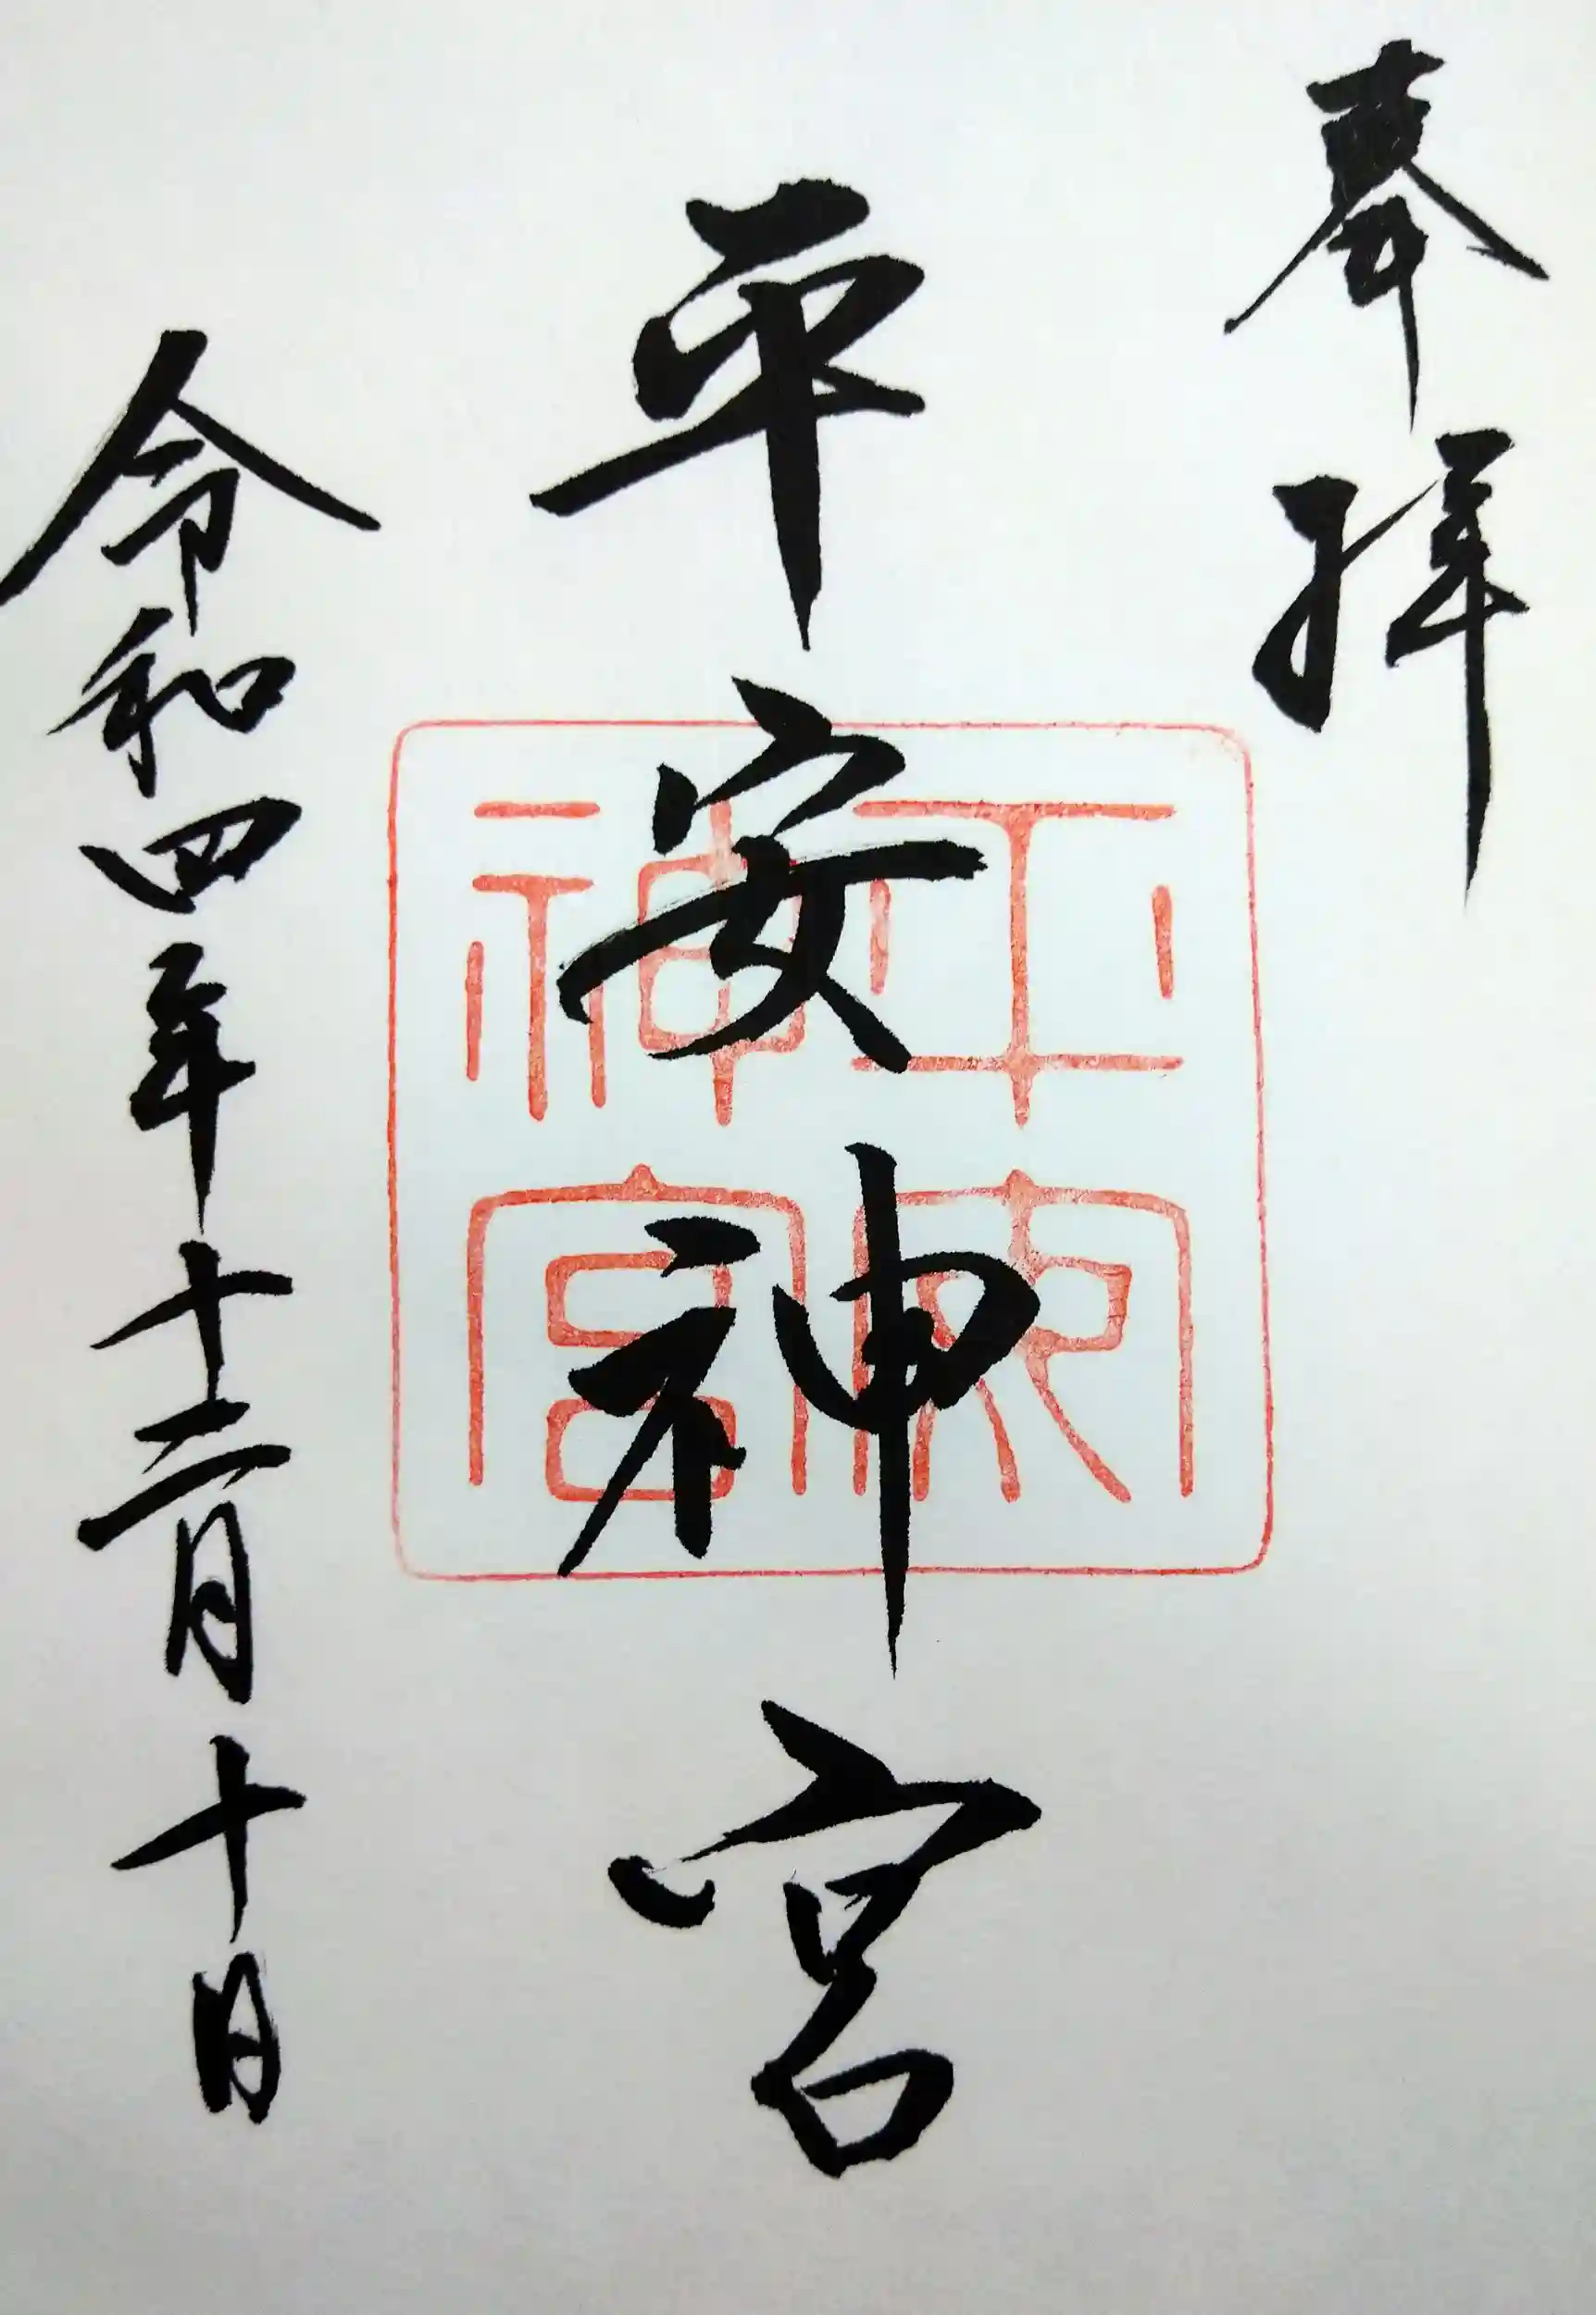 奉拝
平安神宮
平安神宮
令和四年十二月十日